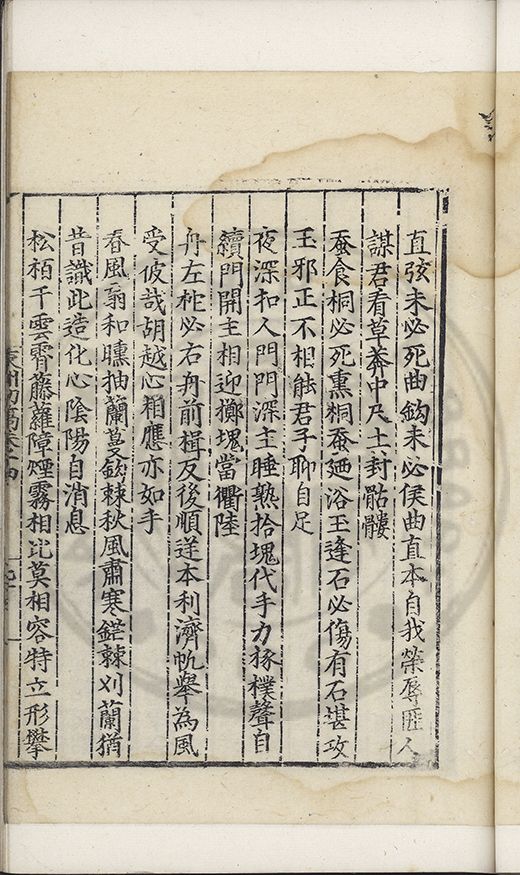 直弦未必死曲鈎未必侯曲直本自我榮辱匪人
謀君看草莽中乃士封骷髏
蚕食桐必死熏桐蚕廼浴玉逢石必傷有石堪攻
玉邪正不相能君子聊自足
夜深扣人門門深主睡熟拾塊代手力椓樸聲自
續門開主相迎擲塊當衢陸
舟左柁必右舟前楫反後順逆本利濟帆舉為風
受彼哉胡越心相應亦如手
春風翕和曛抽蘭蔓欽棘秋風肅寒鋩棘刈蘭猶
昔識此造化心陰陽自消息
松栢干雲霄藤蘿障煙霧相比莫相容特立形攀